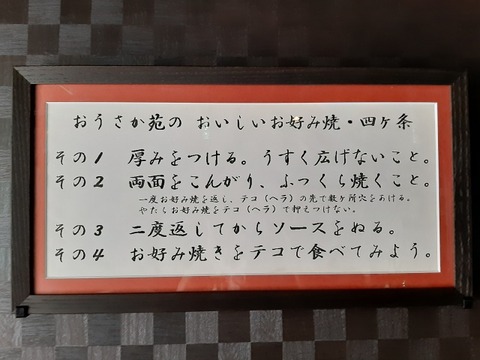 おうさか苑の おいしいお好み焼・四ヶ条
その1 厚みをつける。うすく広げないこと。
その2 両面をこんがり、ふっくら焼くこと。
一度お好み焼を返し、テコ(ヘラ)の先で数ヶ所穴をあける。
やたらお好み焼をテコ(ヘラ)で押えつけない。
その3 二度返してからソースをぬる。
その4 お好み焼きをテコで食べてみよう。